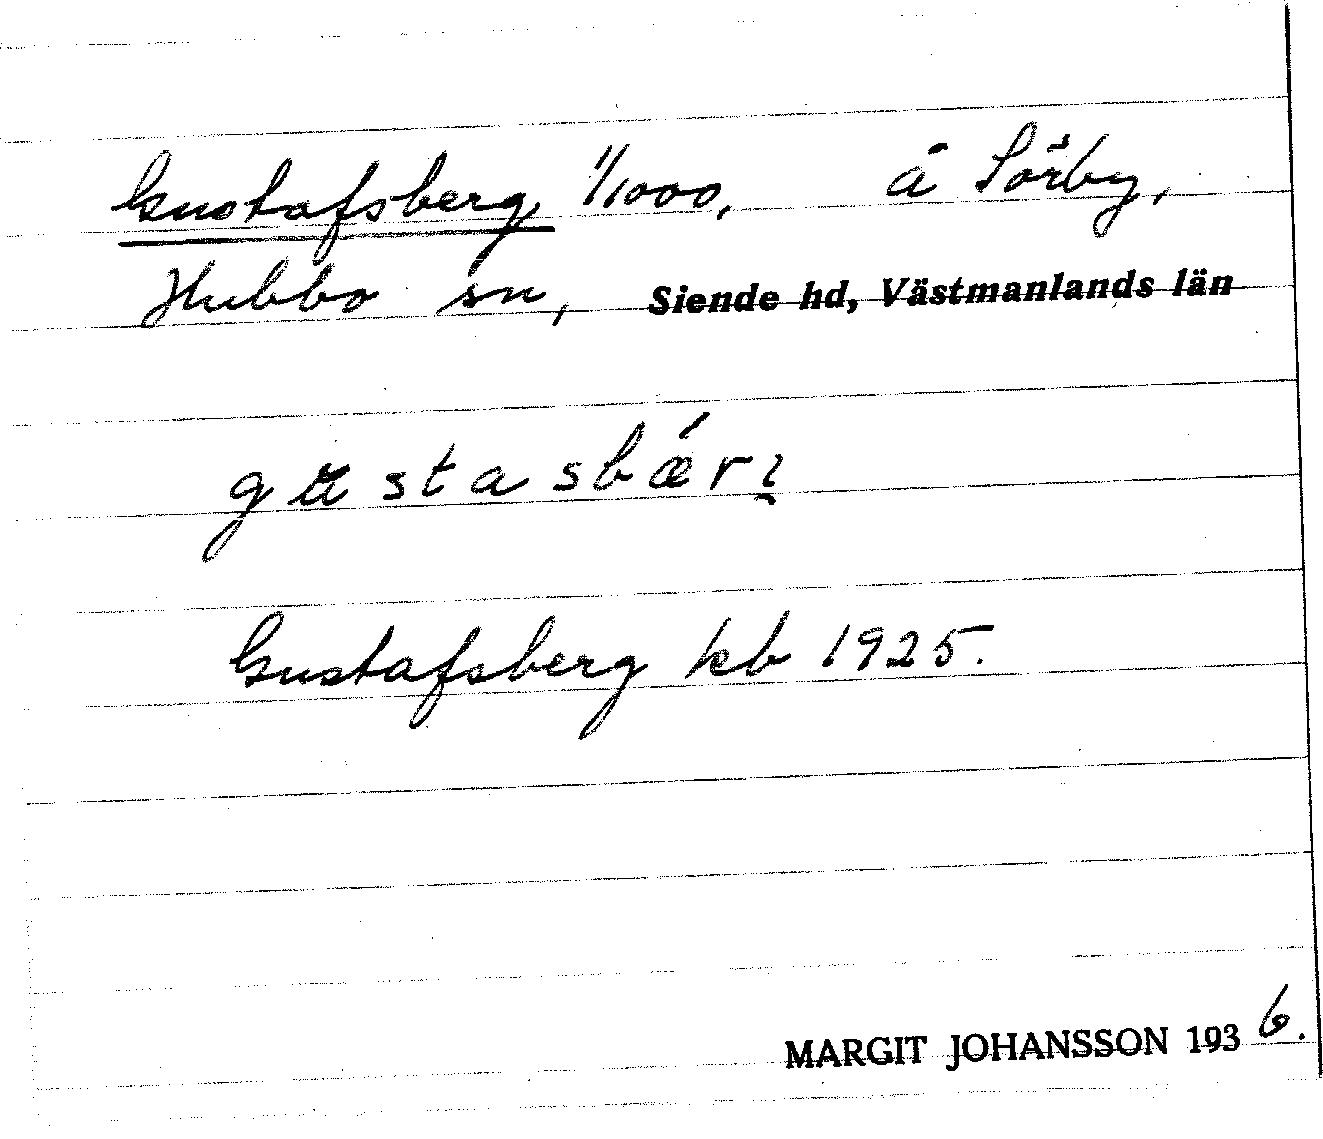 Gustafsberg 1/1000, å Sörby,
Hubbo sn, Siende hd, Västmanlands län
gustasbǽrı̨
Gustafsberg kb 1925.
MARGIT JOHANSSON 1936.